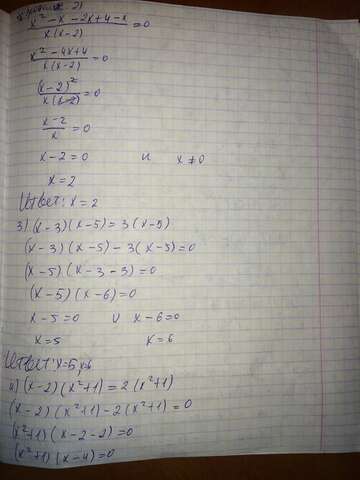 2)
x² - x - 2x + 4 - x / x(x-2) = 0
x² - 4x + 4 / x(x-2) = 0
(x-2)² / x(x-2) = 0
x-2 / x = 0
x - 2 = 0 и x ≠ 0
x = 2
Ответ: x = 2
3) (x-3)(x-5) = 3(x-5)
(x-3)(x-5) - 3(x-5) = 0
(x-5)(x-3-3) = 0
(x-5)(x-6) = 0
x-5=0 и x-6=0
x=5 x=6
Ответ: x=5 и 6
(x-2)(x²+1) = 2(x²+1)
(x-2)(x²+1) - 2(x²+1) = 0
(x²+1)(x-2-2) = 0
(x²+1)(x-4) = 0